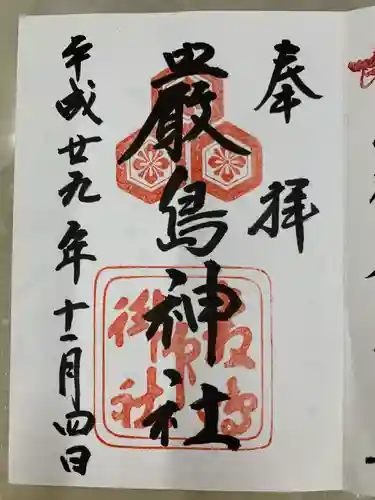 奉拝
嚴島神社
平成廿九年十一月四日